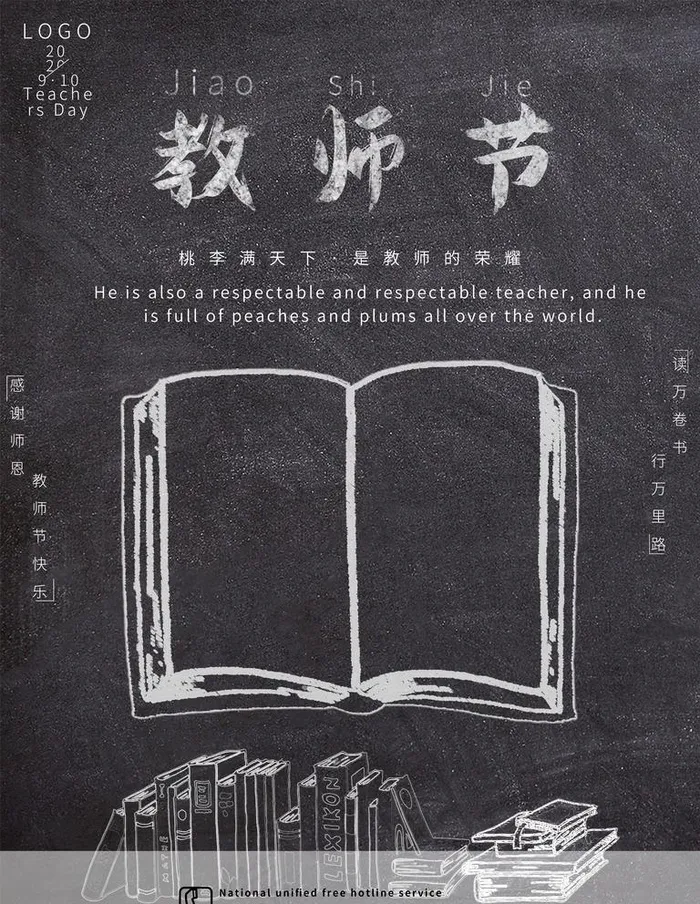 LOGO
20
20
9·10
Teache
rs Day
Jiao Shi Jie
教师节
桃李满天下·是教师的荣耀
He is also a respectable and respectable teacher, and he
is full of peaches and plums all over the world.
感谢师恩
教师节快乐
读万卷书
行万里路
MATHE
LEXIKON
National unified free hotline service